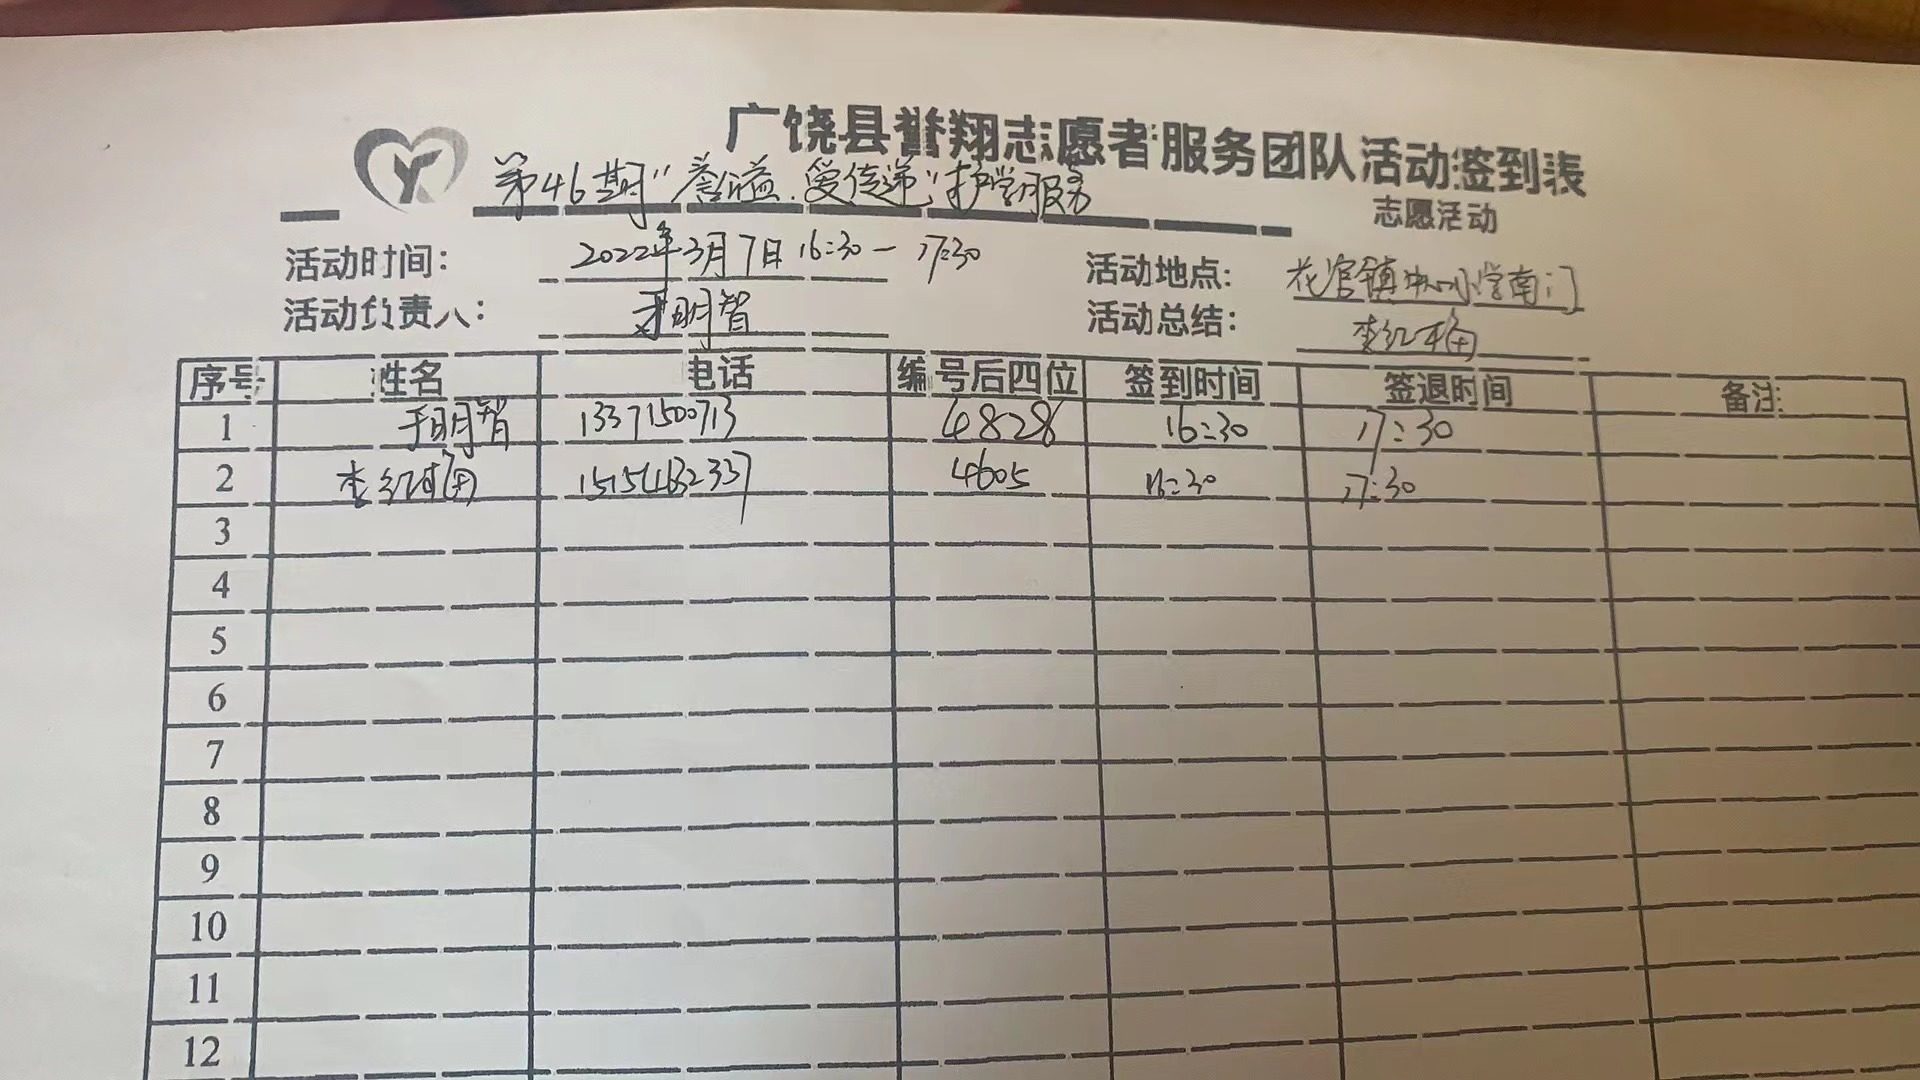 广饶县誉翔志愿者服务团队活动签到表
第46期“誉溢.爱传递”护学服务
志愿活动
活动时间: 2022年3月7日 16:30—17:30 活动地点: 花官镇中心小学南门
活动负责人: 明智 活动总结: 李红梅
序号 姓名 电话 编号后四位 签到时间 签退时间 备注
1 明智 13371500713 4828 16:30 17:30
2 李红梅 4605 16:30 17:30
3
4
5
6
7
8
9
10
11
12